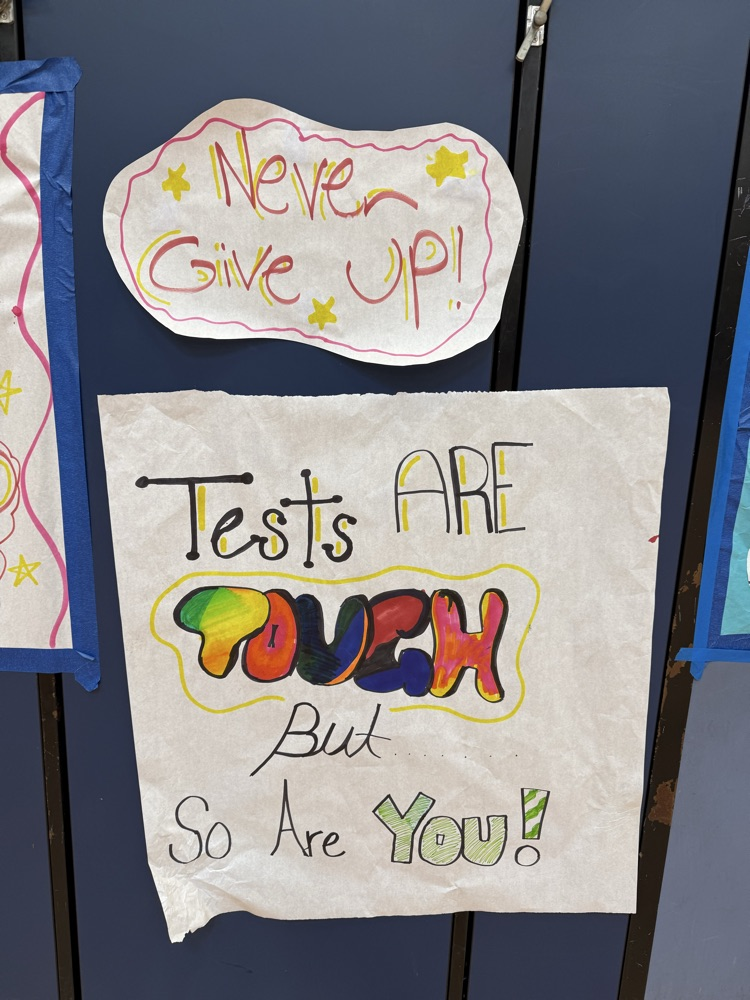 Never
Give up!
Tests ARE
TOUGH
But.........
So Are You!